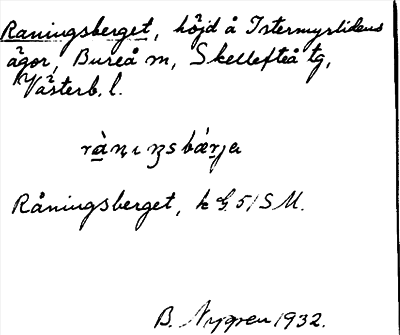 Raningsberget, höjd å Istermyrlidens
ägor, Bureå m, Skellefteå tg,
Västerb. l.
rànıŋsbárja
Råningsberget, k G. 51 S M.
B. Nygren 1932.